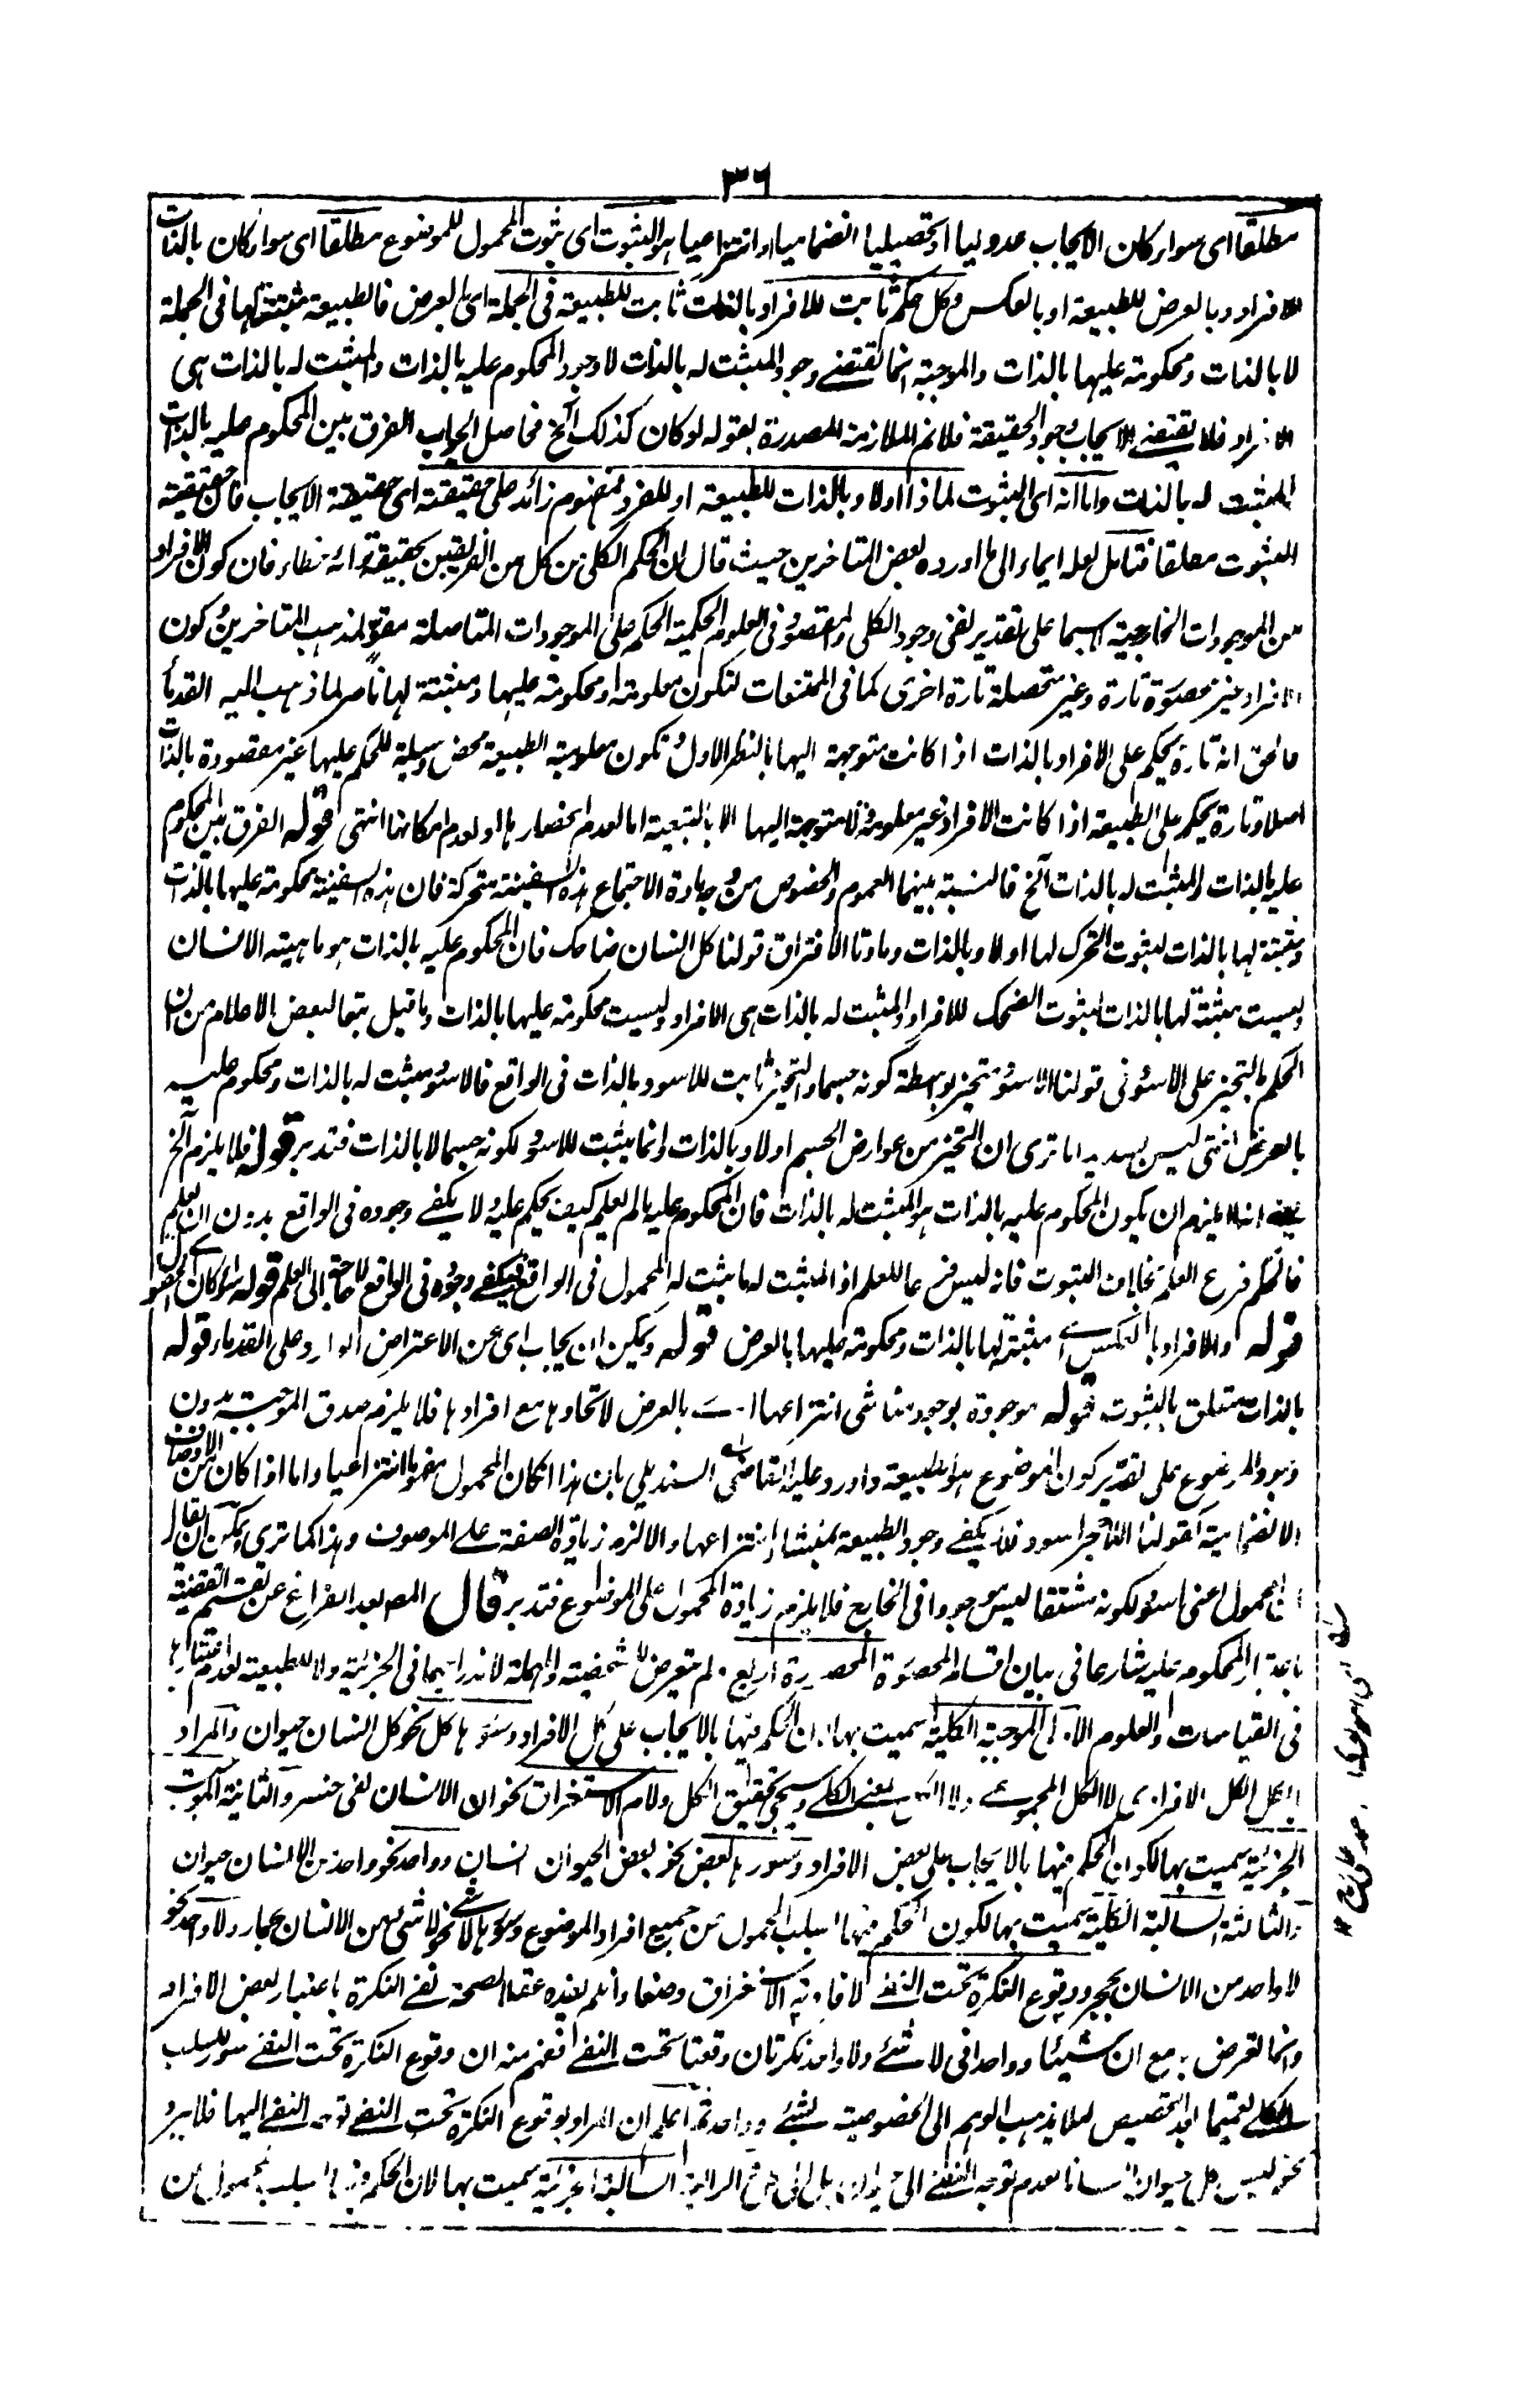 ٣٦
مطلقا اى سواء كان الايجاب عدوليا او تحصيليا انضماميا او انتزاعيا هو الثبوت اى ثبوت المحمول للموضوع مطلقا اى سواء كان بالذات
للافراد وبالعرض للطبيعة او بالعكس وكل حكم ثابت للافراد بالذات ثابت للطبيعة فى الجملة اى بالعرض فالطبيعة مثبتة لها فى الجملة
لا بالذات ومحكومة عليها بالذات والموجبة انما تقتضى وجود المثبت له بالذات لا وجود المحكوم عليه بالذات والمثبت له بالذات هى
الافراد فلا تقتضى الايجاب وجود الحقيقة فلا نم الملازمة المصدرة بقوله لو كان كذلك آلخ فحاصل الجواب الفرق بين المحكوم عليه بالذات
المثبت له بالذات واما انه اى الثبوت لماذا اولا وبالذات للطبيعة او للفرد فمفهوم زائد على حقيقته اى حقيقة الايجاب فان حقيقته
الثبوت مطلقا فتامل لعله ايماء الى ما اورده بعض المتاخرين حيث قال ان الحكم الكلى من كل من الفريقين بحقيقة رائه خطاء فان كون الافراد
من الموجودات الخارجية لاسيما على تقدير نفى وجود الكلى والمقصود فى العلوم الحكمية الحكم على الموجودات المتاصلة مقو لمذهب المتاخرين وكون
الافراد غير محصورة تارة وغير متحصلة تارة اخرى كما فى الممتنعات لتكون معلومة او محكومة عليها ومثبتة لها ناصر لما ذهب اليه القدماء
فالحق انه تارة يحكم على الافراد بالذات اذا كانت متوجهة اليها بالنظر الاول وتكون معلومية الطبيعة محض وسيلة للحكم عليها غير مقصودة بالذات
اصلا وتارة يحكم على الطبيعة اذا كانت الافراد غير معلومة ولا متوجهة اليها الا بالتبعية اما لعدم انحصارها او لعدم امكانها انتهى قوله الفرق بين المحكوم
عليه بالذات والمثبت له بالذات آلخ فالنسبة بينهما العموم والخصوص من وجه مادة الاجتماع هذه السفينة متحركة فان هذه السفينة محكومة عليها بالذات
ومثبتة لها بالذات لثبوت التحرك لها اولا وبالذات ومادتا الافتراق قولنا كل انسان ضاحك فان المحكوم عليه بالذات هو ماهية الانسان
وليست مثبتة لها بالذات لثبوت الضحك للافراد والمثبت له بالذات هى الافراد وليست محكومة عليها بالذات وما قيل تبعا لبعض الاعلام من ان
الحكم بالتحيز على الاسود فى قولنا الاسود متحيز بواسطة كونه جسما والتحيز ثابت للاسود بالذات فى الواقع فالاسود مثبت له بالذات ومحكوم عليه
بالعرض انتهى ليس بسديد اما ترى ان التحيز من عوارض الجسم اولا وبالذات وانما يثبت للاسود لكونه جسما لا بالذات فتدبر قوله فلا يلزم آلخ
يعنى انه لا يلزم ان يكون المحكوم عليه بالذات هو المثبت له بالذات فان المحكوم عليه ما لم يعلم كيف يحكم عليه ولا يكفى وجوده فى الواقع بدون ان يعلم
فالحكم فرع العلم بخلاف الثبوت فانه ليس فرعا للعلم اذ المثبت له ما يثبت له المحمول فى الواقع فيكفى وجوده فى الواقع ولا حاجة الى العلم قوله سواء كان
قوله والافراد بالعكس اى مثبتة لها بالذات ومحكومة عليها بالعرض قوله ويمكن ان يجاب اى عن الاعتراض الوارد على القدماء قوله
بالذات متعلق بالثبوت قوله موجودة بوجود مناشى انتزاعها اى بالعرض لاتحادها مع افرادها فلا يلزم صدق الموجبة بدون
وجود الموضوع على تقدير كون الموضوع هو الطبيعة واورد عليه القاضى السنديلى بان هذا ان كان المحمول مفهوما انتزاعيا واما اذا كان من الاوصاف
الانضمامية كقولنا الحجر اسود فلا يكفى وجود الطبيعة بمنشاء انتزاعها والا لزم زيادة الصفة على الموصوف وهذا كما ترى ويمكن ان يقال
ان المحمول اعنى اسود لكونه مشتقا ليس موجودا فى الخارج فلا يلزم زيادة المحمول على الموضوع فتدبر قال المص بعد الفراغ عن تقسيم القضية
باعتبار المحكوم عليه شارعا فى بيان اقسام المحصورة المحصورة اربع ولم يتعرض للشخصية والمهملة لاندراجهما فى الجزئية ولا للطبيعية لعدم اعتبارها
فى القياسات والعلوم الاولى الموجبة الكلية سميت بها لان الحكم فيها بالايجاب على كل الافراد وسورها كل نحو كل انسان حيوان والمراد
بالكل الكل الافرادى لا الكل المجموعى ولا الكل بمعنى الكلى وسيجئ تحقيق الكل ولام الاستغراق نحو ان الانسان لفى خسر والثانية الموجبة
الجزئية سميت بها لكون الحكم فيها بالايجاب على بعض الافراد وسورها بعض نحو بعض الحيوان انسان وواحد نحو واحد من الانسان حيوان
والثالثة السالبة الكلية سميت بها لكون الحكم فيها بسلب المحمول عن جميع افراد الموضوع وسورها لا شئ نحو لا شئ من الانسان بحجار ولا واحد نحو
لا واحد من الانسان بحجر ووقوع النكرة تحت النفى لافادته الاستغراق وضعا وان لم يفده عقلا لصحة نفى النكرة باعتبار بعض الافراد
وانما تعرض به مع ان شيئا وواحدا فى لا شئ ولا واحد نكرتان وقعتا تحت النفى افهم منه ان وقوع النكرة تحت النفى سور للسلب
الكلى تعميما بعد التخصيص لئلا يذهب الوهم الى الخصوصية لشئ وواحد ثم اعلم ان المراد بوقوع النكرة تحت النفى توجه النفى اليها فلا يرد
نحو ليس كل حيوان انسانا لعدم توجه النفى الى حيوان بل الى كل الرابعة السالبة الجزئية سميت بها لان الحكم فيها بسلب المحمول عن